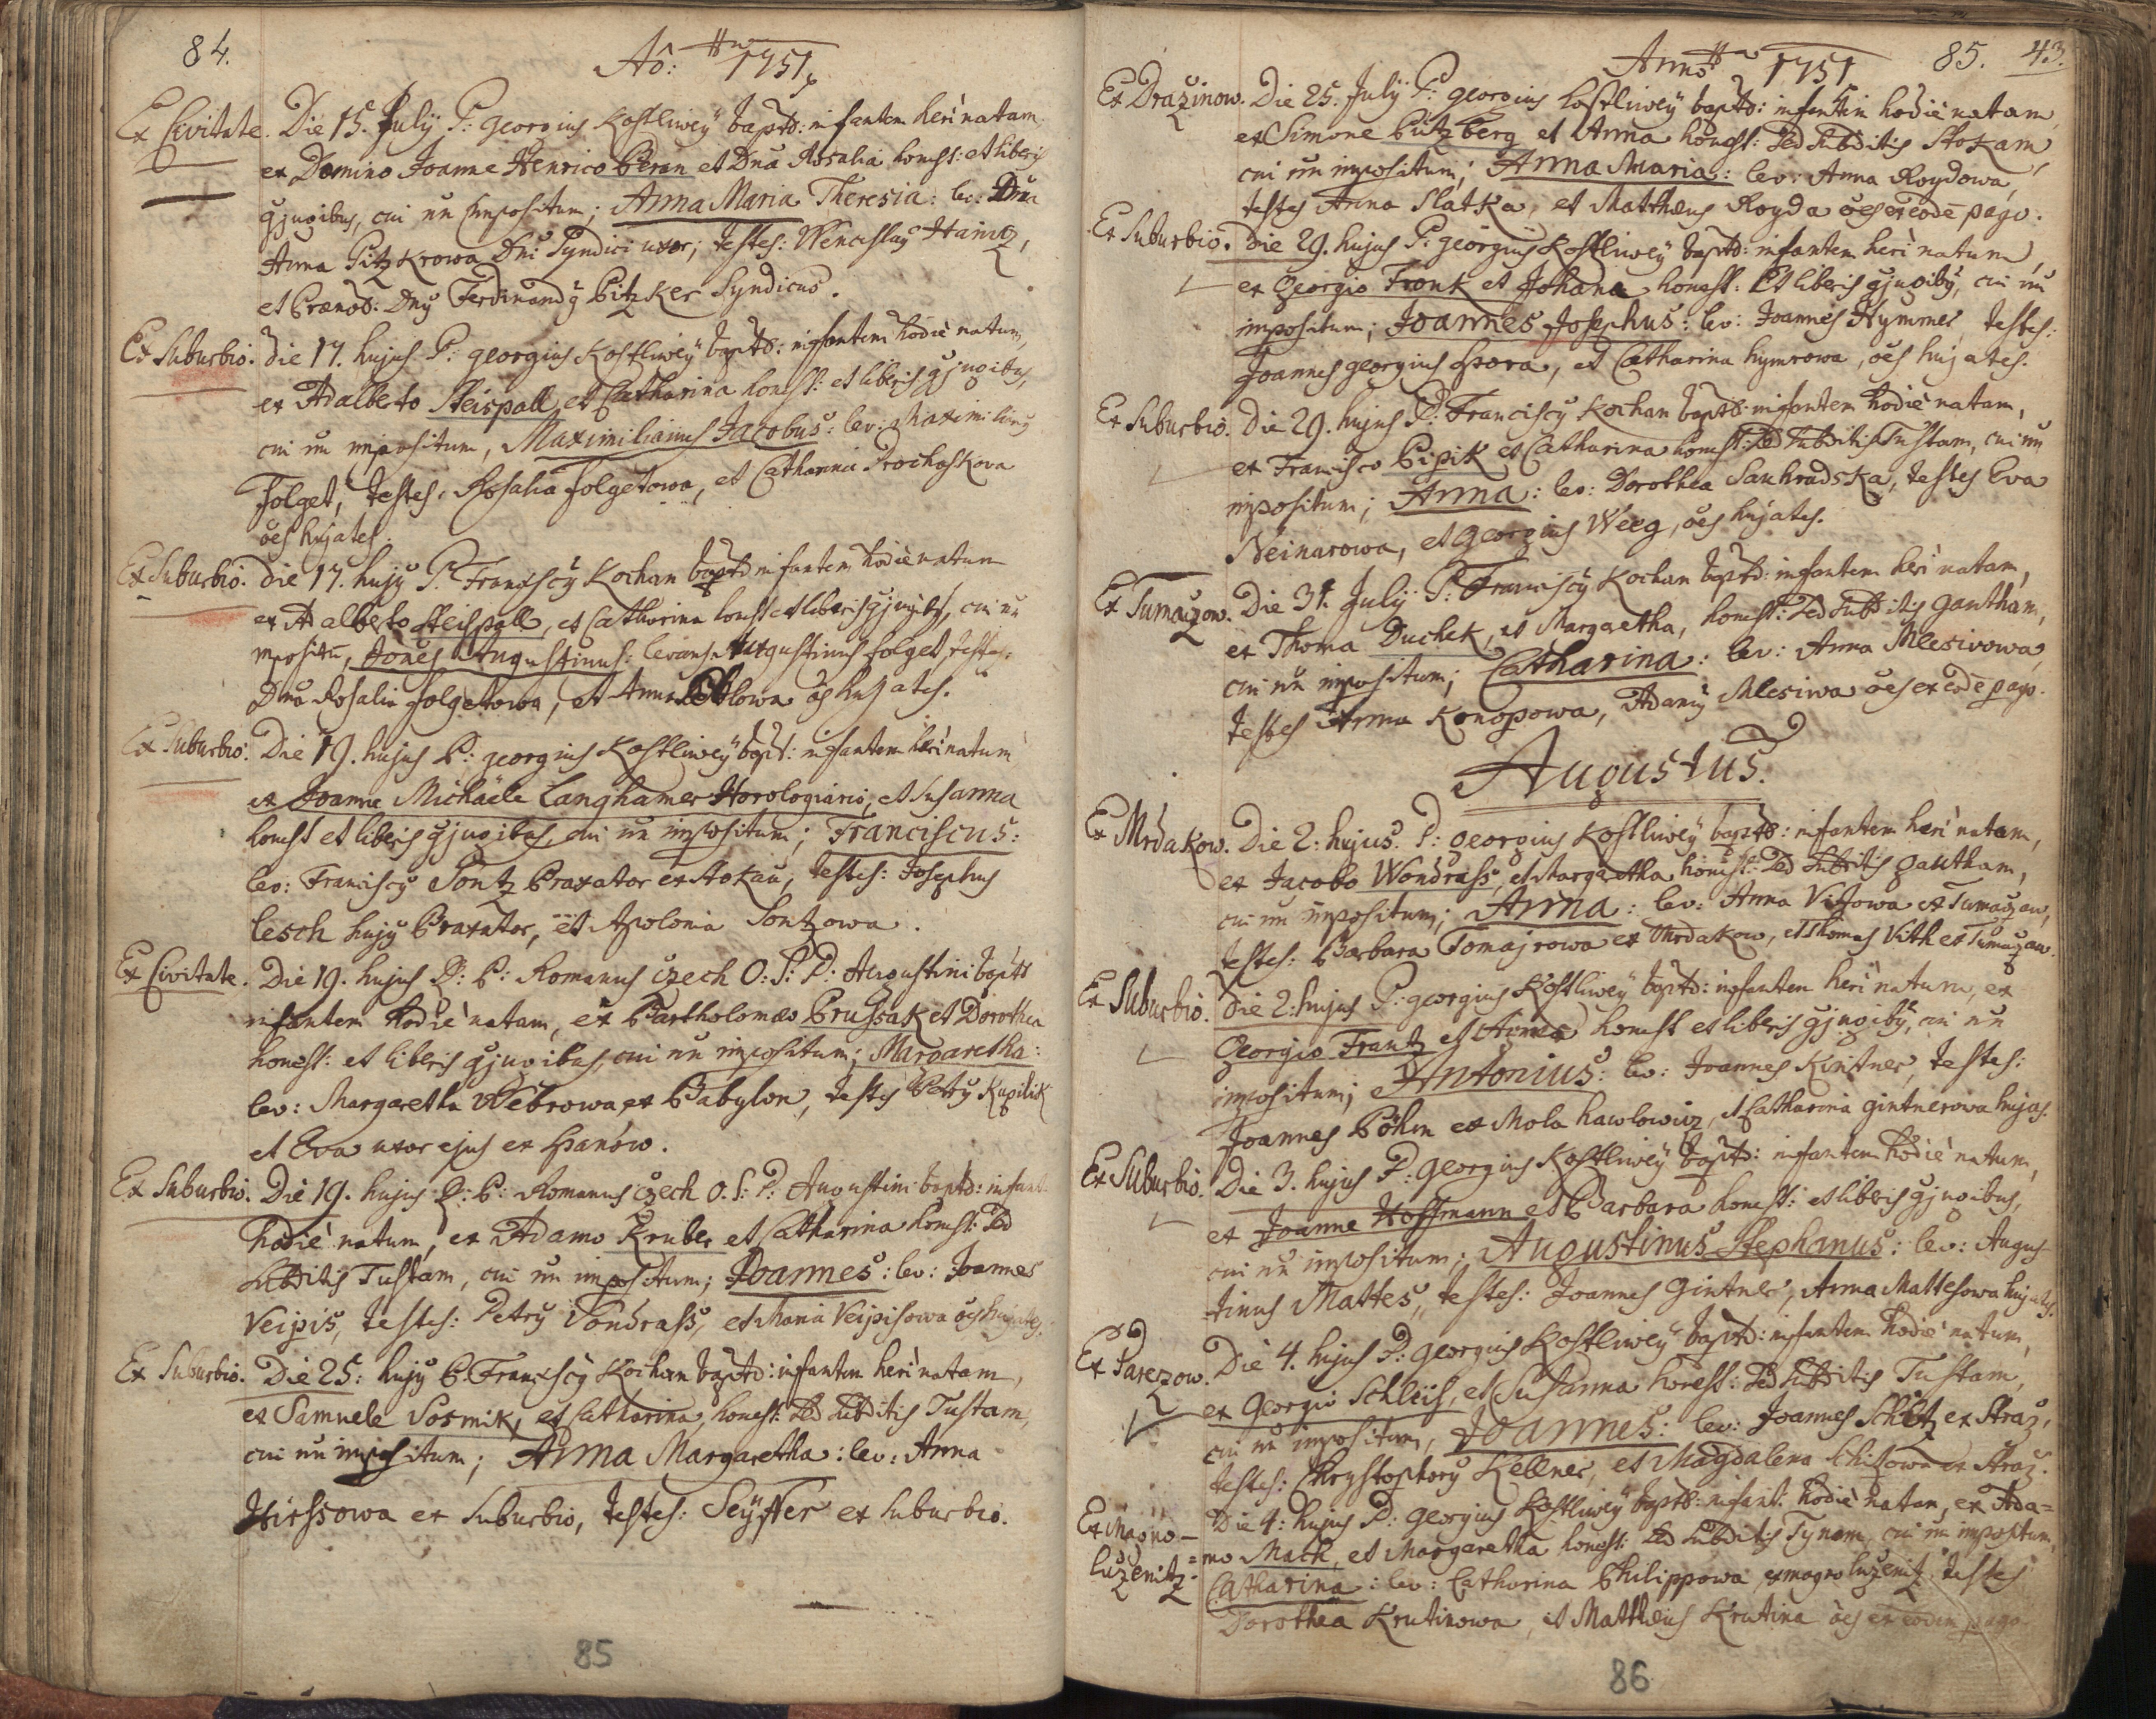 84.
Aõ: 1751
Ex Civitate. Die 15. Julÿ P: georgius Kostliweÿ baptö: infantem heri natam
ex Domino Joanne Henrico Beran et Dnã Rosalia honest: et liberis
gjugibus, cui nn impositum; Anna Maria Theresia: lev: Dna
Anna Pitzkrowa Dni Syndici uxor; testes: Wenceslaÿ Hainz,
et Prænob: Dnÿ Ferdinandÿ Pitzker Syndicus.
Ex Suburbio. die 17. hujus P: georgius Kostliweÿ baptö: infantem hodie natum,
ex Adalberto Steispall et Catharina honest: et liberis gjugibus,
cui nn impositum, Maximilianus Jacobus: lev: Maximilianÿ
Folget, testes: Rosalia Folgetowa, et Catharina Prochaskova
oes hujates.
Ex Suburbio. die 17. hujÿ P. Franciscÿ Kochan baptö infantem hodie natum
ex Adalberto Steispall, et Catharina honest et liberis gjugibÿ, cui nn
impositũ, Jöneş Augustinus: levans Augustinus folget, testes:
Dna Rosalia folgetowa, et Anna lowa oes hujates.
Ex Suburbio. Die 19. hujus P: georgius Kostliweÿ bapt: infantem heri natum
ex Joanne Michaële Langhamer Horologiario, et Susanna
honest et liberis gjugibus, cui nn impositum; Franciscus:
lev: Franciscÿ Sontz Braxator ex Stokau, testes: Josephus
Lesch hujÿ Braxator, et Apolonia Sontzowa.
Ex Civitate. Die 19. hujus P: P: Romanus Czech O: S: P: Augustini baptö
infantem hodie natam, ex Bartholomæo Prussak et Dorothea
honest: et liberis gjugibus, cui nn impositum; Margaretha:
lev: Margaretha Webrowa ex Babylon, testes Petrÿ Kupilik
et Eva uxor ejus ex Hanow.
Ex Suburbio. Die 19. hujus P: P: Romanus Czech O. S: P: Augustini baptö: infant
hodie natum, ex Adamo Kruber et Catharina honest: sed
subditis Tustam, cui nn impositum; Joannes: lev: Joannes
Veipis, testes: Petrÿ Vondrass, et Maria Veipisowa oes hujates.
Ex Suburbio. Die 25: hujÿ P. Franciscÿ Kochan baptö: infantem heri natam,
ex Samuele Sosmik, et Catharina, honest: sed subditis Tustam,
cui nn impositum; Anna Margaretha: lev: Anna
Hirssowa ex Suburbio, testes: Seÿffer ex suburbio.
85
Anno 1751 85. 43.
Ex Drazinow. Die 25. Julÿ P: georgius Kostliweÿ baptö: infantem hodie natam,
ex Simone Pützberg et Anna honest: sed subditis Stokam,
cui nn impositum; Anna Maria: lev: Anna Roydowa,
testes Anna Slatka, et Matthæus Royda oes ex eodē pago.
Ex Suburbio. Die 29. hujus P: georgius Kostliweÿ baptö: infantem heri natum,
ex Georgio Fronk et Johana honest: et liberis gjugibÿ, cui nn
impositum; Joannes Josephus: lev: Joannes Hymmer, testes:
Joannes georgius Hora, et Catharina hymrowa, oes hujates.
Ex Suburbio. Die 29. hujus P: Franciscÿ Kochan baptö: infantem hodie natam,
ex Francisco Pipik et Catharina honest: sed subditis Tustam, cui nn
impositum; Anna: lev: Dorothea Sauhradska, testes Eva
Neinarowa, et Georgius Weeg, oes hujates.
Ex Tumaczow. Die 31. Julÿ P: Franciscÿ Kochan baptö: infantem heri natam,
ex Thoma Duchek, et Margaretha, honest: sed subditis gautham,
cui nn impositum; Catharina: lev: Anna Mlesivowa,
testes Anna Konopowa, Adamÿ Mlesiwa oes ex eodē pago.
Augustus.
Ex Mrdakow. Die 2: hujus. P: georgius Kostliweÿ baptö: infantem heri natam,
ex Jacobo Wondrass, et Margaretha honest: sed subditis gautham,
cui nn impositum; Anna: lev: Anna Vitowa ex Tumaczow,
testes: Barbara Tomajrowa ex Mrdakow, et Thomas Vith ex Tumaczow.
Ex Suburbio. Die 2: hujus P: georgius Kostliweÿ baptö: infantem heri natum, ex
Georgio Frantz et Agnes honest et liberis gjugibÿ, cui nn
impositum; Antonius: lev: Joannes Kintner, testes:
Joannes Böhm ex Mola hawlowicz, et Catharina gintnerowa hujas.
Ex Suburbio. Die 3. hujus P: georgius Kostliweÿ baptö: infantem hodie natum,
ex Joanne Hoffmann et Barbara honest: et liberis gjugibus,
cui nn impositum; Augustinus Stephanus: lev: Augus-
tinus Mattes, testes: Joannes Gintner, Anna Mattesowa hujates.
Ex Parezow. Die 4. hujus P: georgius Kostliweÿ baptö: infantem hodie natum,
ex Georgio Schleiss, et Susanna honest: sed subditis Tustam,
cui nn impositum, Joannes: lev: Joannes Schitz ex Straz,
testes: Chrystophorÿ Kellner, et Magdalena Schitzowa ex Straz.
Ex Magno- Die 4: hujus P: georgius Kostliweÿ baptö: infant. hodie natam, ex Ada=
luzenitz. =mo Mach, et Margaretha honest: sed subditis Tynam, cui nn impositum,
Catharina: lev: Catharina Philippowa ex magno luzenitz testes
Dorothea Krutinowa, et Matthæus Krutina oes ex eodem pago
86